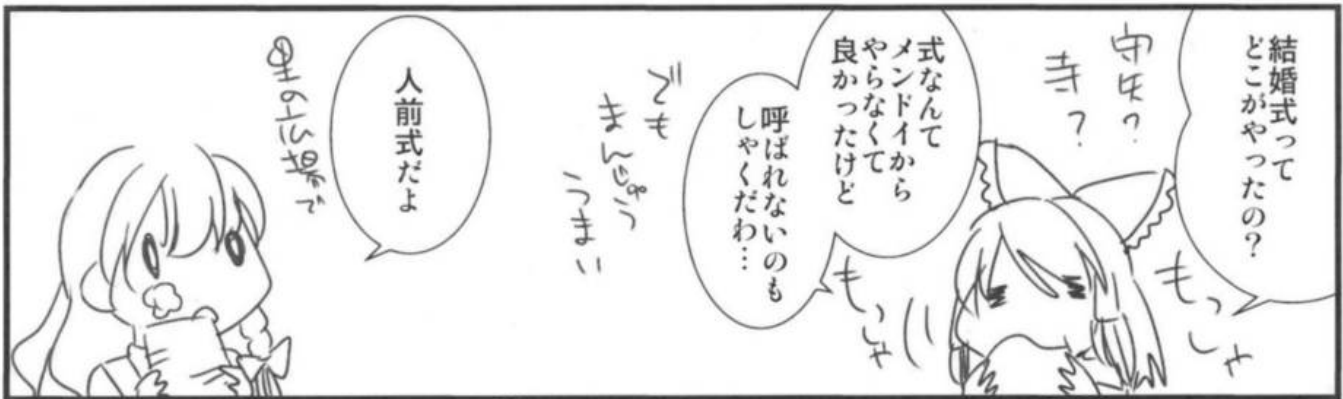 結婚式って
どこがやったの？
守矢？
寺？
もっしゃ
もっしゃ
式なんて
メンドイから
やらなくて
良かったけど
呼ばれないのも
しゃくだわ…
でも
まんじゅう
うまい
人前式だよ
里の広場で